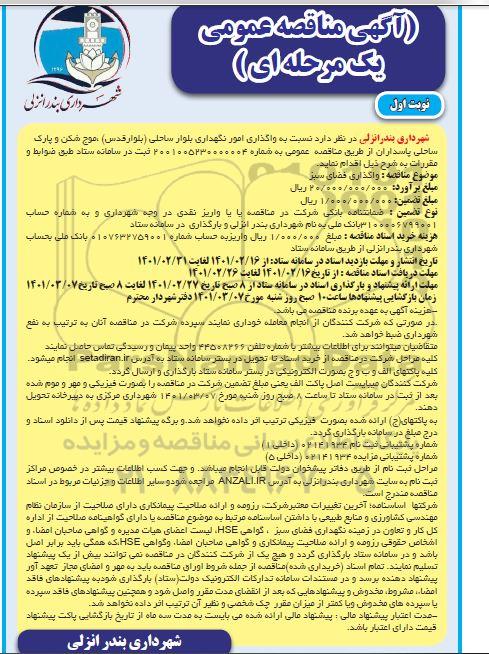 (آگهی مناقصه عمومی
یک مرحله ای)
۱۲۹۶
شهرداری بندرانزلی
نوبت اول
شهرداری بندرانزلی در نظر دارد نسبت به واگذاری امور نگهداری بلوار ساحلی (بلوارقدس) ،موج شکن و پارک
ساحلی پاسداران از طریق مناقصه عمومی به شماره ۲۰۰۱۰۰۵۲۳۰۰۰۰۰۰۴ ثبت در سامانه ستاد طبق ضوابط و
مقررات به شرح ذیل اقدام نماید.
موضوع مناقصه : واگذاری فضای سبز
مبلغ برآورد: ۲۰/۰۰۰/۰۰۰/۰۰۰ ریال
مبلغ تضمین: ۱/۰۰۰/۰۰۰/۰۰۰ ریال
نوع تضمین : ضمانتنامه بانکی شرکت در مناقصه یا یا واریز نقدی در وجه شهرداری و به شماره حساب
۳۱۰۰۰۰۶۷۹۹۰۰۱بانک ملی به نام شهرداری بندر انزلی و بارگذاری در سامانه ستاد
هزینه خرید اسناد مناقصه : مبلغ ۱/۰۰۰/۰۰۰ ریال واریزبه حساب شماره ۰۱۰۷۶۳۲۷۵۹۰۰۱ بانک ملی بحساب
شهرداری بندرانزلی از طریق سامانه ستاد
تاریخ انتشار و مهلت بازدید اسناد در سامانه ستاد: از ۱۴۰۱/۰۲/۱۶ لغایت ۱۴۰۱/۰۲/۳۱
مهلت دریافت اسناد مناقصه : از تاریخ ۱۴۰۱/۰۲/۱۶ لغایت ۱۴۰۱/۰۲/۲۶
مهلت ارائه پیشنهاد و بارگذاری اسناد در سامانه ستاد از ۸ صبح تاریخ ۱۴۰۱/۰۲/۲۷ لغایت ۸ صبح تاریخ ۱۴۰۱/۰۳/۰۷
زمان بازگشایی پیشنهادها ساعت ۱۰ صبح روز شنبه مورخ ۱۴۰۱/۰۳/۰۷ دفتر شهردار محترم
-هزینه آگهی به عهده برنده مناقصه می باشد.
.در صورتی که شرکت کنندگان از انجام معامله خودداری نمایند سپرده شرکت در مناقصه آنان به ترتیب به نفع
شهرداری ضبط خواهد شد.
متقاضیان میتوانند برای اطلاعات بیشتر با شماره تلفن ۴۴۵۰۸۲۶۶ واحد پیمان و رسیدگی تماس حاصل نمایند
کلیه مراحل شرکت در مناقصه از خرید اسناد تا تحویل در بستر سامانه ستاد به آدرس setadiran.ir انجام میشود.
کلیه پاکتهای الف و ب و ج بصورت الکترونیکی در بستر سامانه ستاد بارگذاری و ارسال گردد.
شرکت کنندگان میبایست اصل پاکت الف یعنی مبلغ تضمین شرکت در مناقصه را بصورت فیزیکی و مهر و موم شده
بعد از ثبت در سامانه ستاد تا ساعت ۸ صبح روز شنبه مورخ ۱۴۰۱/۰۳/۰۷ شهرداری مرکزی به دبیرخانه تحویل
دهند.
به پاکتهای(ج) ارائه شده بصورت فیزیکی ترتیب اثر داده نخواهد شد.و برگه پیشنهاد قیمت پس از دانلود اسناد و
درج مبلغ در سامانه بارگذاری گردد.
شماره پشتیبانی ثبت نام ۰۲۱۴۱۹۳۴ (داخلی ۱)
شماره پشتیبانی مزایده ۰۲۱۴۱۹۳۴ (داخلی ۵)
مراحل ثبت نام از طریق دفاتر پیشخوان دولت قابل انجام میباشد. و جهت کسب اطلاعات بیشتر در خصوص مراکز
ثبت نام به سایت شهرداری بندرانزلی به آدرس ANZALI.IR مراجعه شود.و سایر اطلاعات و جزئیات مربوط در اسناد
مناقصه مندرج است.
شرکتها اساسنامه؛ آخرین تغییرات معتبرشرکت، رزومه و ارائه صلاحیت پیمانکاری دارای صلاحیت از سازمان نظام
مهندسی کشاورزی و منابع طبیعی با داشتن اساسنامه مرتبط به موضوع مناقصه یا دارای گواهینامه صلاحیت از اداره
کل کار و تعاون در زمینه نگهداری فضای سبز ، گواهی HSE، لیست اعضای هیات مدیره و گواهی صاحبان امضا، و
اشخاص حقوقی رزومه و ارائه صلاحیت پیمانکاری و گواهی صاحبان امضا، وگواهی HSE،که همگی باید برابر اصل
باشد و در سامانه ستاد بارگذاری گردد و هیچ یک از شرکت کنندگان در مناقصه نمی توانند بیش از یک پیشنهاد
تسلیم نمایند. تمام اسناد (خریداری شده)مناقصه از جمله شروط اوراق مناقصه باید به مهر و امضای مجاز تعهد آور
پیشنهاد دهنده برسد و در مستندات سامانه تدارکات الکترونیک دولت(ستاد) بارگذاری شودبه پیشنهادهای فاقد
امضاء، مشروط، مخدوش و پیشنهادهایی که بعد از انقضای مدت مقرر واصل شود و همچنین پیشنهادهای فاقد سپرده
یا سپرده های مخدوش ویا کمتر از میزان مقرر چک شخصی و نظیر آن ترتیب اثر داده نخواهد شد.
-مدت اعتبار پیشنهاد مالی : پیشنهاد مالی ارائه شده می بایست به مدت سه ماه از تاریخ بازگشایی پاکت پیشنهاد
قیمت دارای اعتبار باشد.
شهرداری بندر انزلی